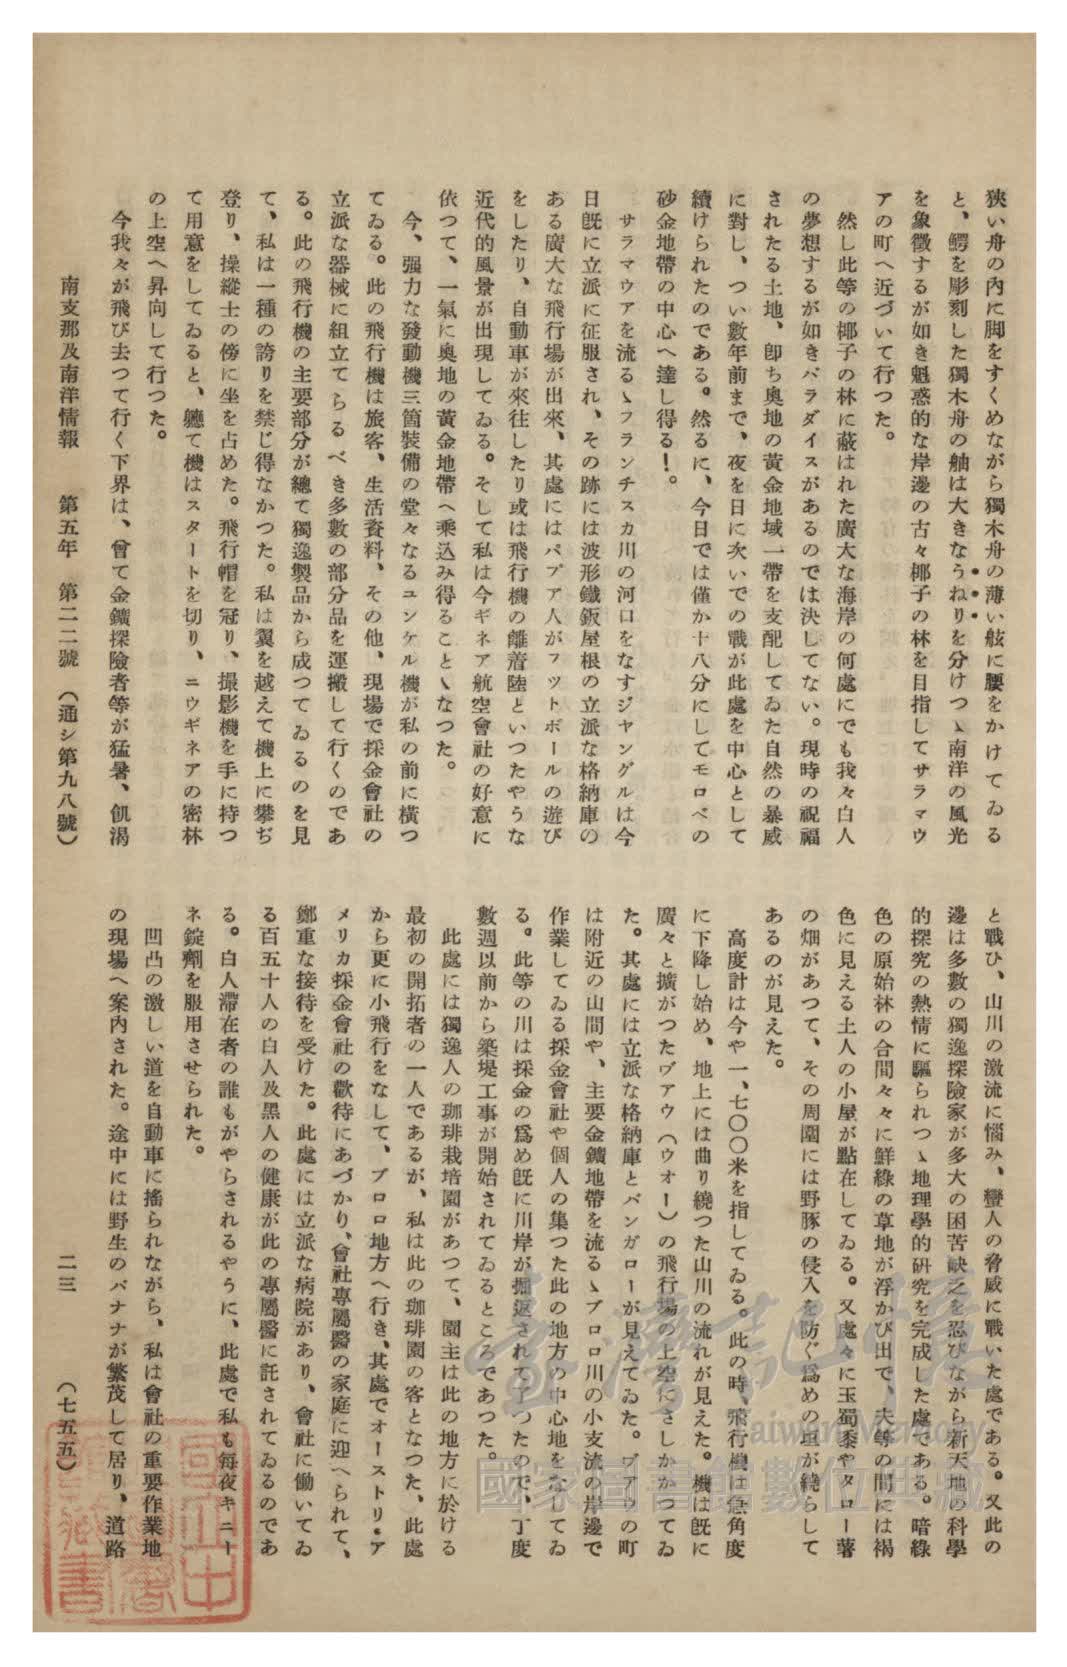 狹い舟の內に脚をすくめながら獨木舟の薄い舷に腰をかけてゐる
と、鰐を彫刻した獨木舟の舳は大きなうねりを分けつゝ南洋の風光
を象徵するが如き魁惑的な岸邊の古々椰子の林を目指してサラマウ
アの町へ近づいて行つた。
然し此等の椰子の林に蔽はれた廣大な海岸の何處にでも我々白人
の夢想するが如きパラダイスがあるのでは決してない。現時の祝福
されたる土地、卽ち奧地の黃金地域一帶を支配してゐた自然の暴威
に對し、つい數年前まで、夜を日に次いでの戰が此處を中心として
續けられたのである。然るに、今日では僅か十八分にしてモロベの
砂金地帶の中心へ達し得る！。
サラマウアを流るゝフランチスカ川の河口をなすジヤングルは今
日旣に立派に征服され、その跡には波形鐵鈑屋根の立派な格納庫の
ある廣大な飛行場が出來、其處にはパプア人がフツトボールの遊び
をしたり、自動車が來往したり或は飛行機の離着陸といつたやうな
近代的風景が出現してゐる。そして私は今ギネア航空會社の好意に
依つて、一氣に奧地の黃金地帶へ乘込み得ることゝなつた。
今、强力な發動機三箇裝備の堂々なるユンケル機が私の前に橫つ
てゐる。此の飛行機は旅客、生活資料、その他、現場で採金會社の
立派な器械に組立てらるべき多數の部分品を運搬して行くのであ
る。此の飛行機の主要部分が總て獨逸製品から成つてゐるのを見
て、私は一種の誇りを禁じ得なかつた。私は翼を越えて機上に攀ぢ
登り、操縱士の傍に坐を占めた。飛行帽を冠り、撮影機を手に持つ
て用意をしてゐると、軈て機はスタートを切り、ニウギネアの密林
の上空へ昇向して行つた。
今我々が飛び去つて行く下界は、曾て金鑛探險者等が猛暑、飢渴
と戰ひ、山川の激流に惱み、蠻人の脅威に戰いた處である。又此の
邊は多數の獨逸探險家が多大の困苦缺乏を忍びながら新天地の科學
的探究の熱情に驅られつゝ地理學的硏究を完成した處である。暗綠
色の原始林の合間々々に鮮綠の草地が浮かび出で、夫等の間には褐
色に見える土人の小屋が點在してゐる。又處々に玉蜀黍やタロー薯
の畑があつて、その周圍には野豚の侵入を防ぐ爲めの垣が繞らして
あるのが見えた。
高度計は今や一、七〇〇米を指してゐる。此の時、飛行機は急角度
に下降し始め、地上には曲り繞つた山川の流れが見えた。機は旣に
廣々と擴がつたヴアウ（ウオー）の飛行場の上空にさしかかつてゐ
た。其處には立派な格納庫とバンガローが見えてゐた。ヴアウの町
は附近の山間や、主要金鑛地帶を流るゝブロロ川の小支流の岸邊で
作業してゐる採金會社や個人の集つた此の地方の中心地をなしてゐ
る。此等の川は採金の爲め旣に川岸が掘返されて了つたので、丁度
數週以前から築堤工事が開始されてゐるところであつた。
此處には獨逸人の珈琲栽培園があつて、園主は此の地方に於ける
最初の開拓者の一人であるが、私は此の珈琲園の客となつた、此處
から更に小飛行をなして、ブロロ地方へ行き、其處でオーストリ・ア
メリカ採金會社の歡待にあづかり、會社專屬醫の家庭に迎へられて、
鄭重な接待を受けた。此處には立派な病院があり、會社に働いてゐ
る百五十人の白人及黑人の健康が此の專屬醫に託されてゐるのであ
る。白人滯在者の誰もがやらされるやうに、此處で私も每夜キニー
ネ錠劑を服用させられた。
凹凸の激しい道を自動車に搖られながら、私は會社の重要作業地
の現場へ案內された。途中には野生のバナナが繁茂して居り、道路
南支那及南洋情報　第五年　第二二號　（通シ第九八號）　二三　（七五五）
臺灣記憶
Taiwan Memory
國家圖書館數位典藏